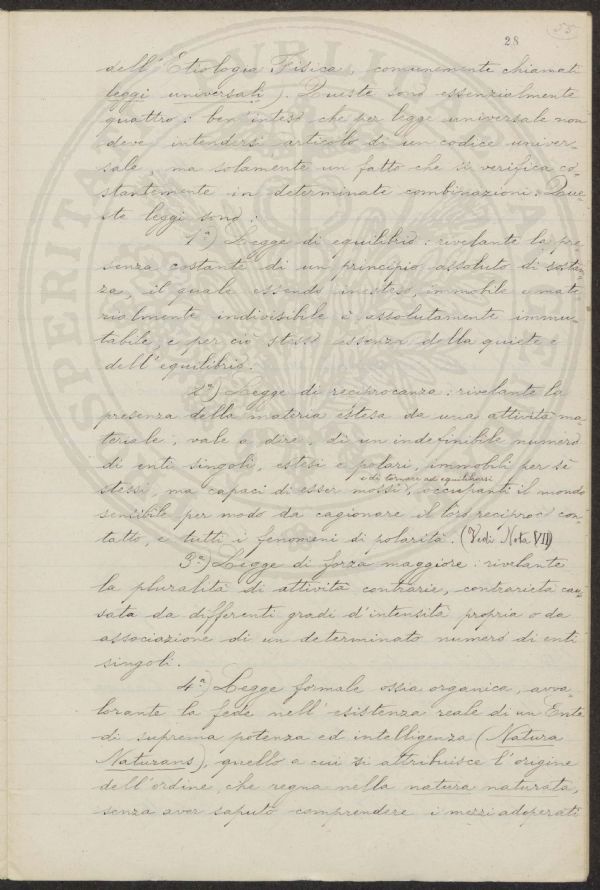 28
55
dell' Etiologia Fisica, comunemente chiamati
leggi universali). Queste sono essenzialmente
quattro: ben inteso che per legge universale non
deve intendersi articolo di un codice univer-
sale, ma solamente un fatto che si verifica co-
stantemente in determinate combinazioni. Que-
ste leggi sono:
1ª) Legge di equilibrio: rivelante la pre-
senza costante di un principio assoluto di sostan-
za, il quale essendo inesteso, immobile e mate-
rialmente indivisibile è assolutamente immu-
tabile, e per ciò stesso essenza della quiete e
dell' equilibrio.
2ª) Legge di reciprocanza: rivelante la
presenza della materia estesa da una attività ma-
teriale, vale a dire, di un indefinibile numero
di enti singoli, estesi e polari, immobili per sè
e di tornare ad equilibrarsi
stessi, ma capaci di esser mossi, occupanti il mondo
sensibile per modo da cagionare il loro reciproco con-
tatto, e tutti i fenomeni di polarità. (Vedi Nota VII)
3ª) Legge di forza maggiore: rivelante
la pluralità di attività contrarie, contrarietà cau-
sata da differenti gradi d'intensità propria o da
associazione di un determinato numero di enti
singoli.
4ª) Legge formale ossia organica, avva-
lorante la fede nell' esistenza reale di un Ente
di suprema potenza ed intelligenza (Natura
Naturans), quello a cui si attribuisce l'origine
dell'ordine, che regna nella natura naturata,
senza aver saputo comprendere i mezzi adoperati